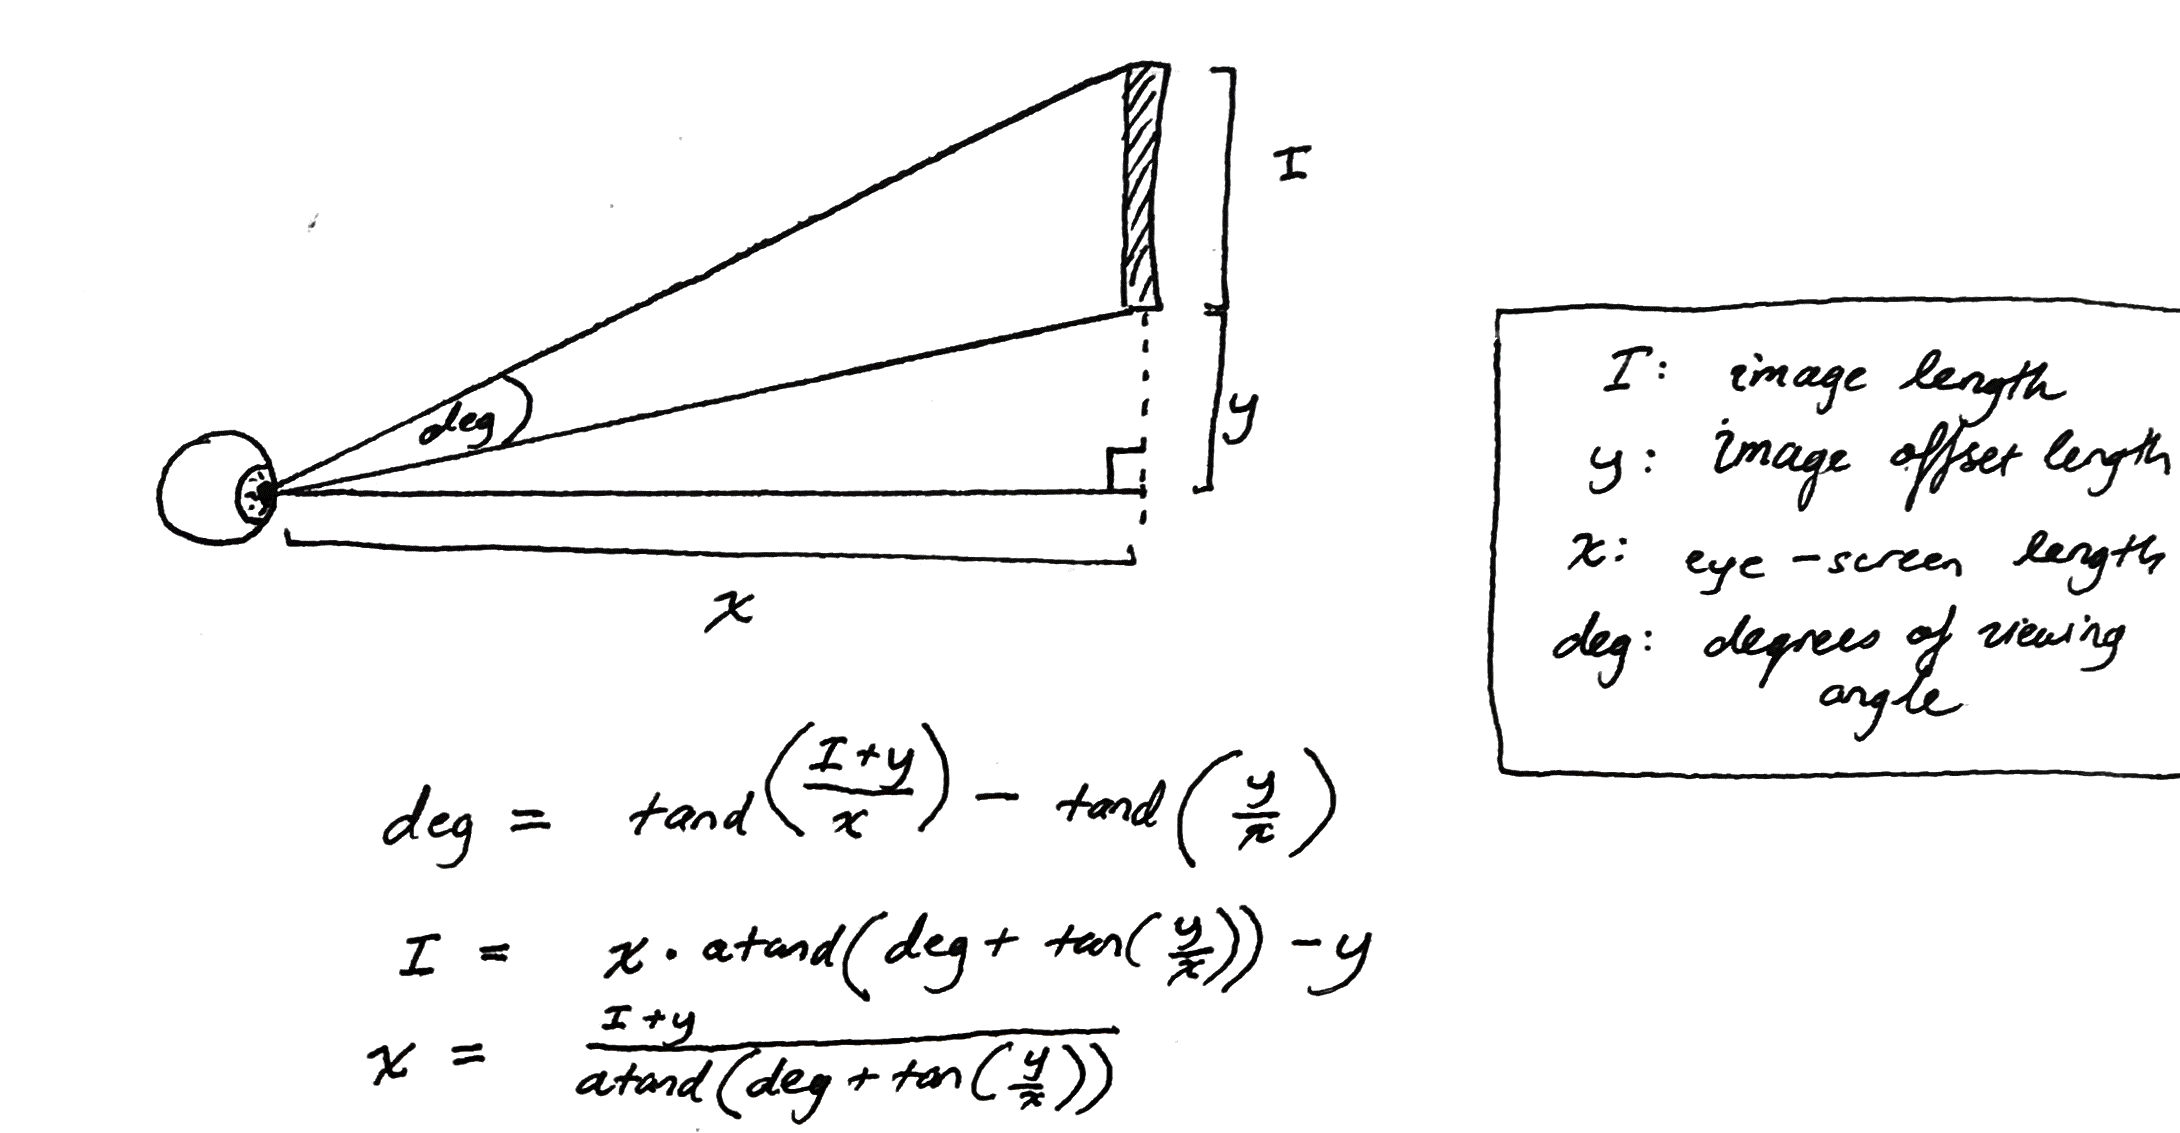 I
deg
y
x
I: image length
y: image offset length
x: eye-screen length
deg: degrees of viewing
angle
deg = tand((I+y)/x) - tand(y/x)
I = x · atand(deg + tan(y/x)) - y
x = (I+y)/(atand(deg + tan(y/x)))